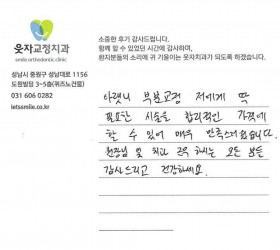 웃자교정치과
smile orthodontic clinic
성남시 중원구 성남대로 1156
도원빌딩 3~5층(위즈노건물)
031 606 0282
letssmile.co.kr
소중한 후기 감사드립니다.
함께 할 수 있었던 시간에 감사하며,
환자분들의 소리에 귀 기울이는 웃자치과가 되도록 하겠습니다.
아랫니 부분교정 저에게 딱
필요한 시술을 합리적인 가격에
할 수 있어 매우 만족스러웠습니다.
원장님 및 치과 근무하시는 모든 분들
감사드리고 건강하세요.